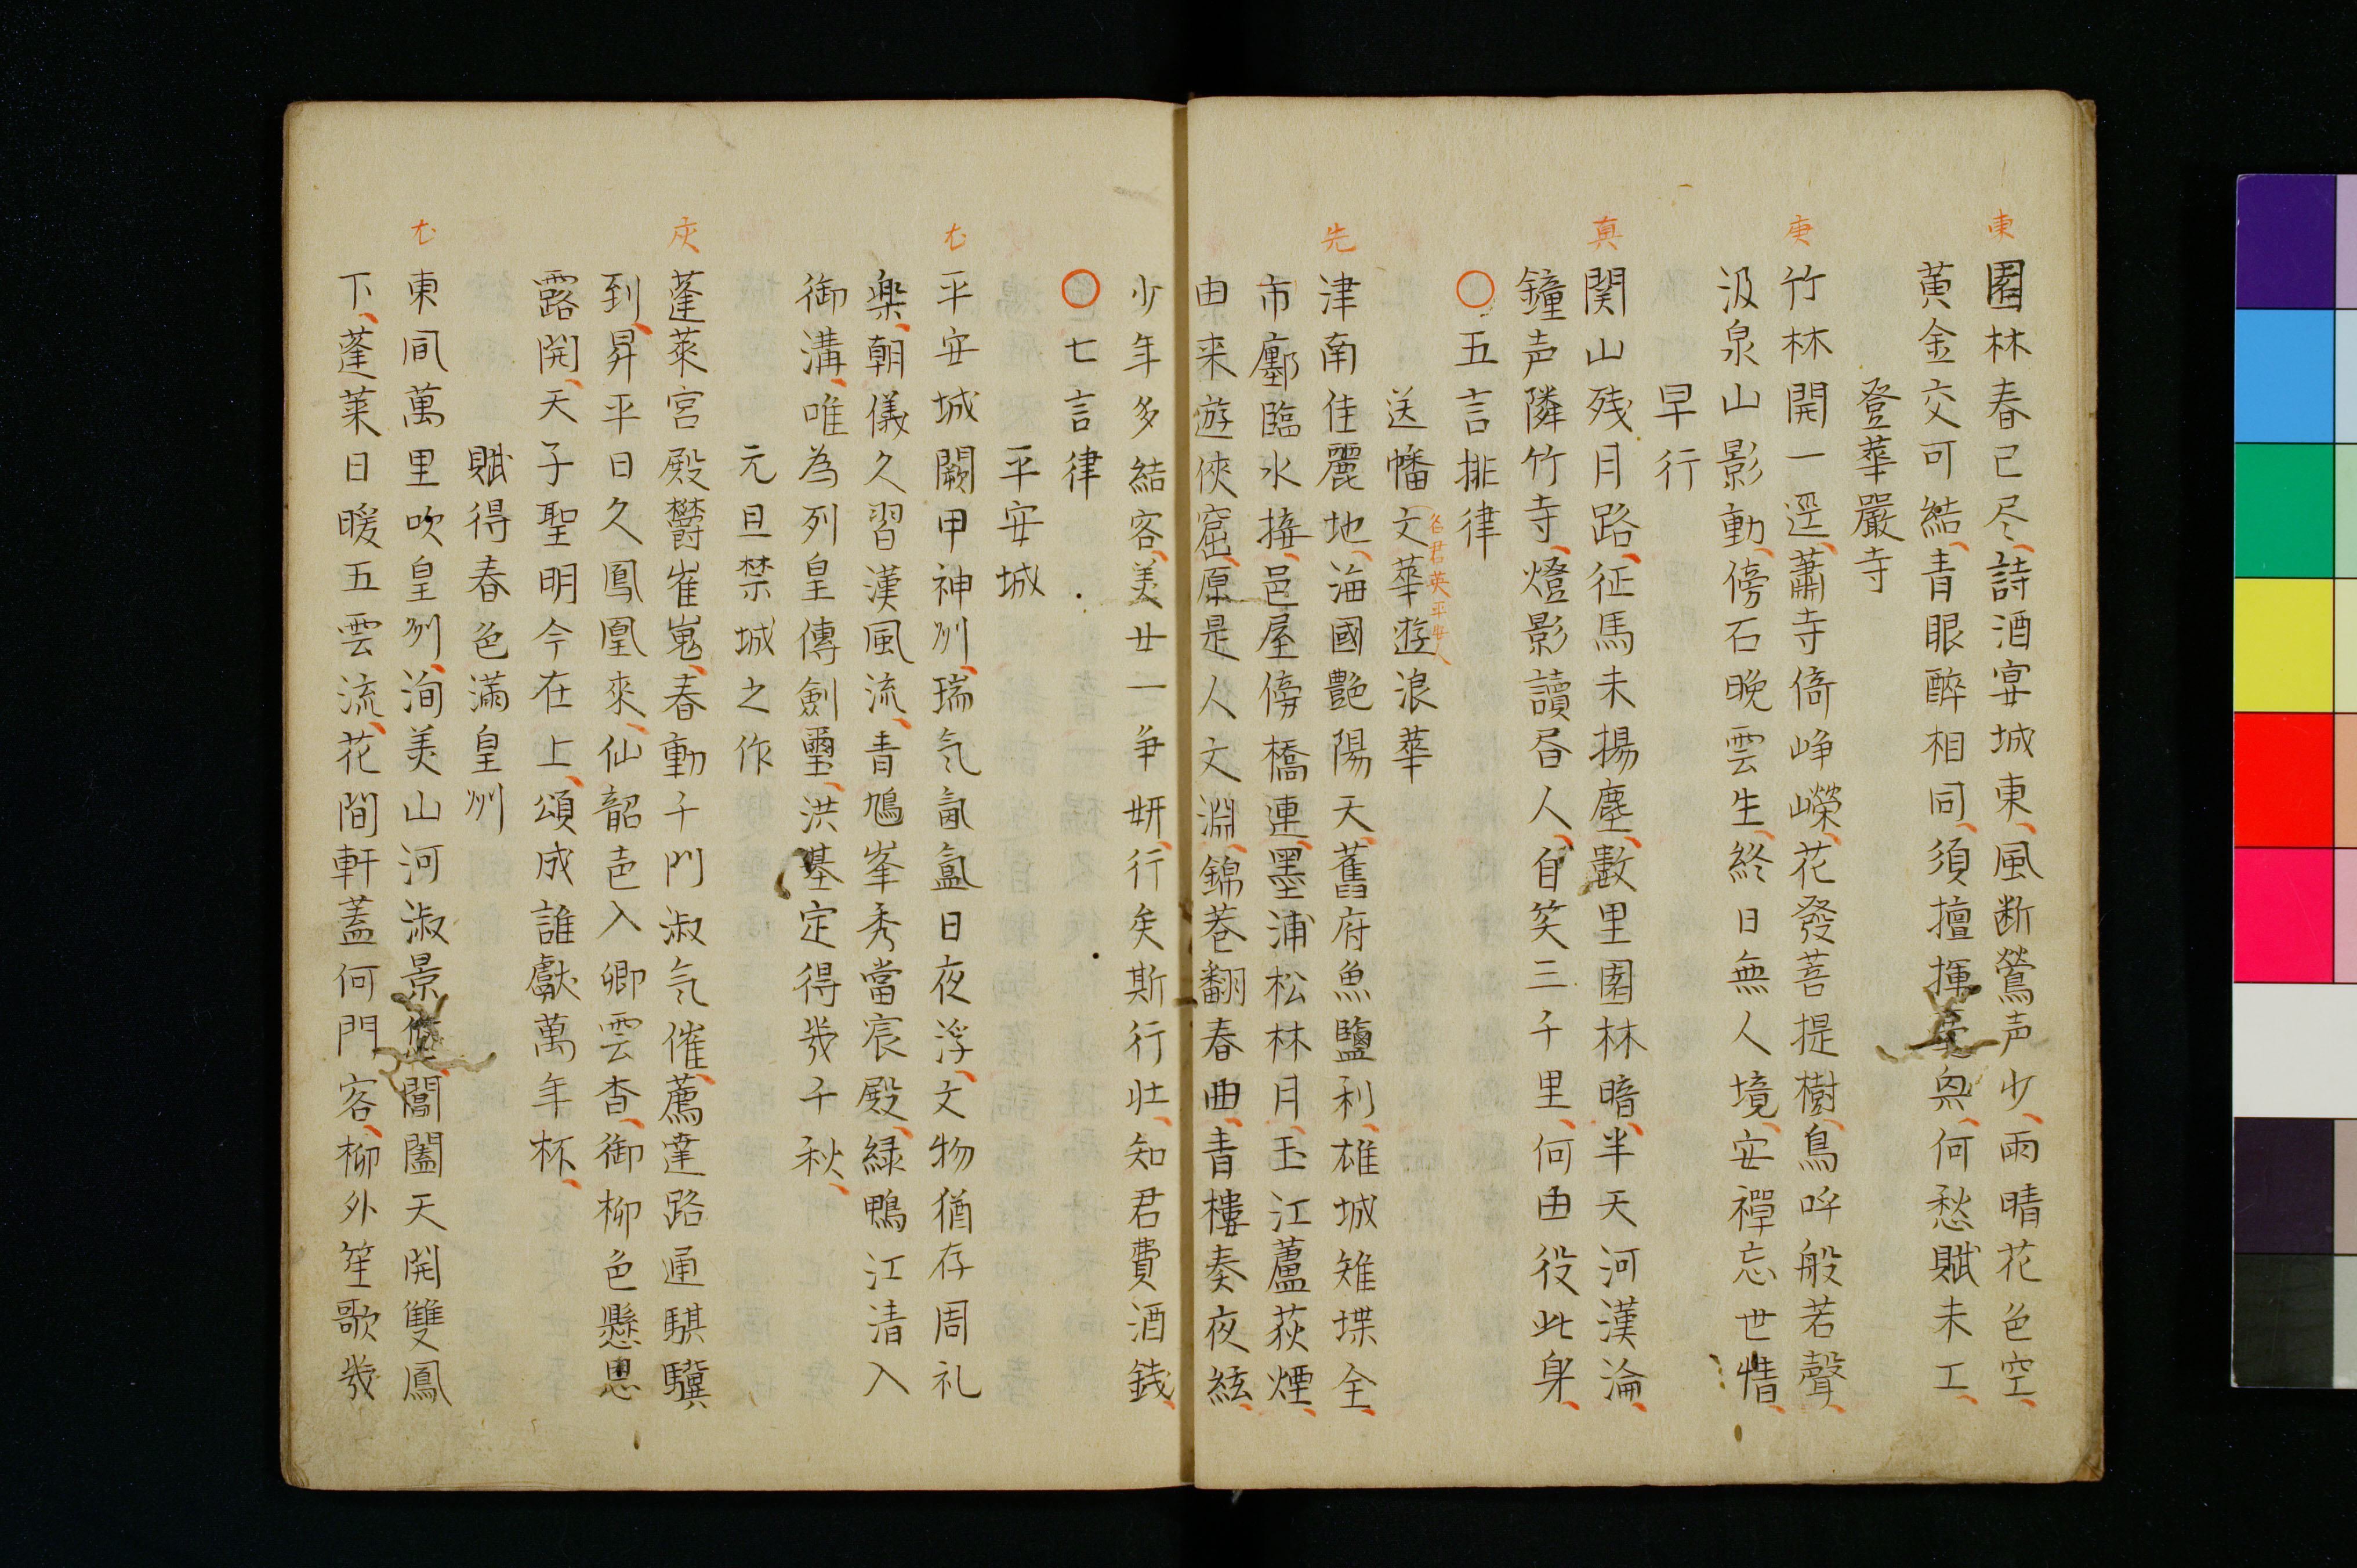 東
園林春已尽、詩酒宴城東、風断鶯声少、雨晴花色空、
黄金交可結、青眼醉相同、須擅揮毫興、何愁賦未工、
登華嚴寺
庚
竹林開一逕、蕭寺倚崢嶸、花發菩提樹、鳥呼般若聲、
汲泉山影動、傍石晩雲生、終日無人境、安禪忘世情、
早行
真
関山残月路、征馬未揚塵、數里園林暗、半天河漢淪、
鐘声隣竹寺、燈影讀昏人、自笑三千里、何由役此身、
〇五言排律
送幡文華遊浪華
名君英平安人
先
津南佳麗地、海國艶陽天、舊府魚鹽利、雄城雉堞全、
市廛臨水接、邑屋傍橋連、墨浦松林月、玉江蘆荻煙、
由来遊俠窟、原是人文淵、錦巷翻春曲、青樓奏夜絃、
少年多結客、美女一争妍、行矣斯行壮、知君費酒錢、
〇七言律
平安城
尤
平安城闕甲神州、瑞气氤氳日夜浮、文物猶存周礼
楽、朝儀久習漢風流、青鳩峯秀當宸殿、緑鴨江清入
御溝、唯為列皇傳劍璽、洪基定得幾千秋、
元旦禁城之作
灰
蓬萊宮殿欝崔嵬、春動千門淑气催、薦薘路通騏驥
到、昇平日久鳳凰來、仙韶邑入卿雲杳、御柳色懸恩
露開、天子聖明今在上、頌成誰獻萬年杯、
賦得春色滿皇州
尤
東風萬里吹皇州、洵美山河淑景、閶闔天開雙鳳
下、蓬萊日暖五雲流、花間軒蓋何門客、柳外笙歌幾